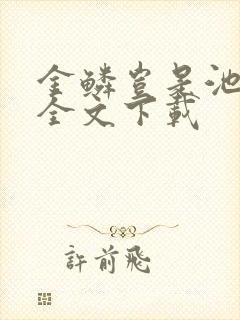 金鱗豈是池
全文下載
許前飛